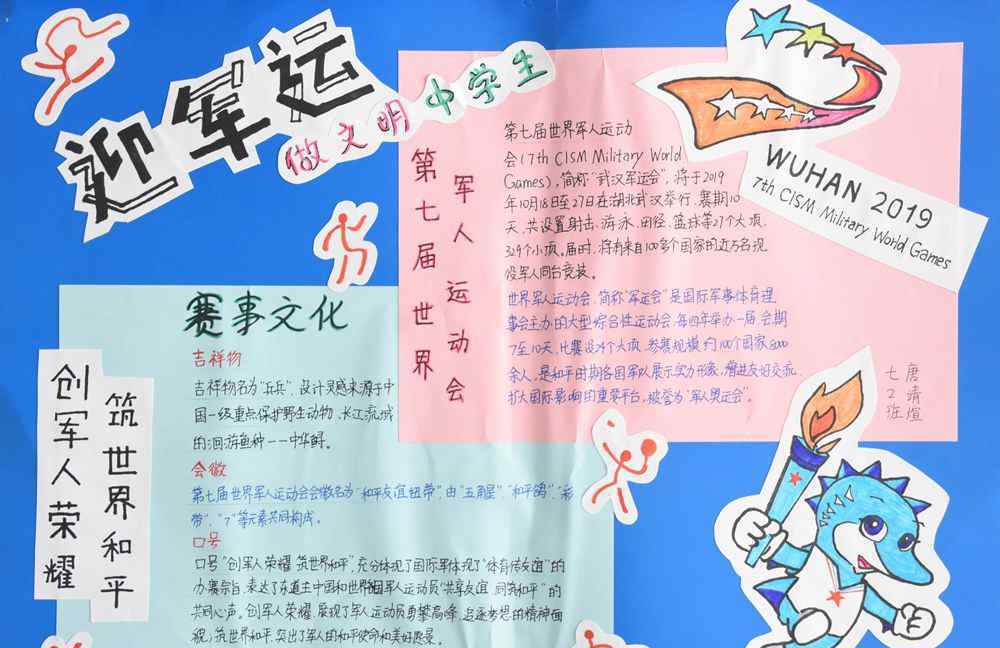 迎军运
做文明中学生
第七届世界
军人运动会
第七届世界军人运动
会(7th CISM Military World
Games),简称"武汉军运会",将于2019
年10月18日至27日在湖北武汉举行,赛期10
天,共设置射击、游泳、田径、篮球等27个大项、
329个小项。届时,将有来自100多个国家的近万名现
役军人同台竞技。
世界军人运动会,简称"军运会"是国际军事体育理
事会主办的大型综合性运动会,每四年举办一届,会期
7至10天,比赛设
大项,参赛规模约100个国家8000
余人,是和平时期各国军队展示实力形象、增进友好交流、
扩大国际影响的重要平台,被誉为"军人奥运会"。
WUHAN 2019
7th CISM Military World Games
七2班
唐靖煊
赛事文化
吉祥物
吉祥物名为"兵兵",设计灵感来源于中
国一级重点保护野生动物、长江流域
的洄游鱼种——中华鲟。
会徽
第七届世界军人运动会会徽名为"和平友谊纽带",由"五角星"、"和平鸽"、"彩
带"、"7"等元素共同构成。
口号
口号"创军人荣耀,筑世界和平",充分体现了国际军体现了"体育传友谊"的
办赛宗旨,表达了东道主中国和世界各国军人运动员"共享友谊,同筑和平"的
共同心声。创军人荣耀,展现了军人运动员勇攀高峰、追逐梦想的精神面
貌;筑世界和平,突出了军人的和平使命和美好愿景。
创军人荣耀
筑世界和平